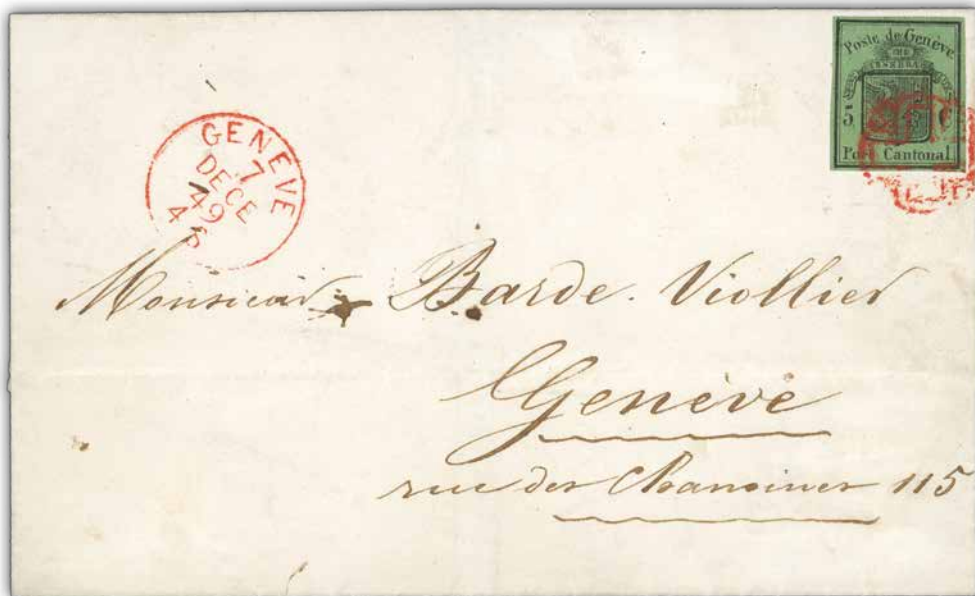 Poste de Genève
POST TENEBRAS LUX
5 c
Port Cantonal
GENEVE
7
DECE
49
4 S
Monsieur Barde. Viollier
Genève
rue des Chanoines 115